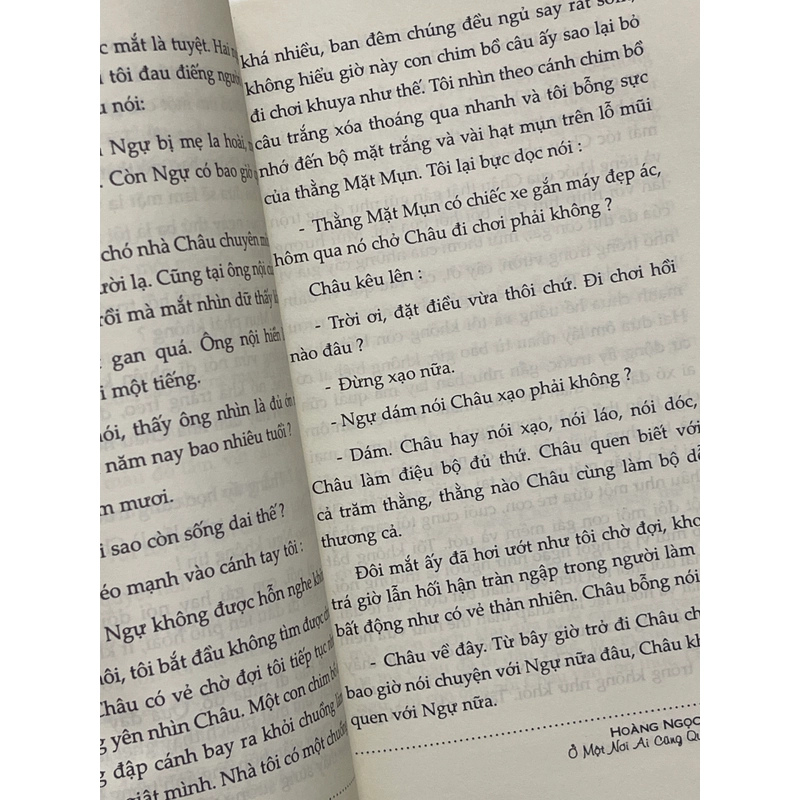 c mắt là tuyệt. Hai
tôi đau điếng người
nói:
Ngự bị mẹ la hoài,
. Còn Ngự có bao giờ
chó nhà Châu chuyên
ười lạ. Cũng tại ông nội
rồi mà mắt nhìn dữ thấy
gan quá. Ông nội hiền
i một tiếng.
ói, thấy ông nhìn là đủ ớn
năm nay bao nhiêu tuổi?
m mươi.
i sao còn sống dai thế?
éo mạnh vào cánh tay tôi:
Ngự không được hỗn nghe
ôi, tôi bắt đầu không tìm được
Châu có vẻ chờ đợi tôi tiếp tục
g yên nhìn Châu. Một con chim
g đập cánh bay ra khỏi chuồng
giật mình. Nhà tôi có một chuồng
khá nhiều, ban đêm chúng đều ngủ say rất
không hiểu giờ này con chim bồ câu ấy sao lại bỏ
đi chơi khuya như thế. Tôi nhìn theo cánh chim bồ
câu trắng xóa thoáng qua nhanh và tôi bỗng sực
nhớ đến bộ mặt trắng và vài hạt mụn trên lỗ mũi
của thằng Mặt Mụn. Tôi lại bực dọc nói :
- Thằng Mặt Mụn có chiếc xe gắn máy đẹp ác,
hôm qua nó chở Châu đi chơi phải không ?
Châu kêu lên :
- Trời ơi, đặt điều vừa thôi chứ. Đi chơi hồi
nào đâu ?
- Đừng xạo nữa.
- Ngự dám nói Châu xạo phải không ?
- Dám. Châu hay nói xạo, nói láo, nói dóc,
Châu làm điệu bộ đủ thứ. Châu quen biết với
cả trăm thằng, thằng nào Châu cũng làm bộ dễ
thương cả.
Đôi mắt ấy đã hơi ướt như tôi chờ đợi, kho
trá giờ lẫn hối hận tràn ngập trong người làm
bất động như có vẻ thản nhiên. Châu bỗng nói
- Châu về đây. Từ bây giờ trở đi Châu ch
bao giờ nói chuyện với Ngự nữa đâu, Châu kh
quen với Ngự nữa.
HOÀNG NGỌC
Ở Một Nơi Ai Cũng Qu